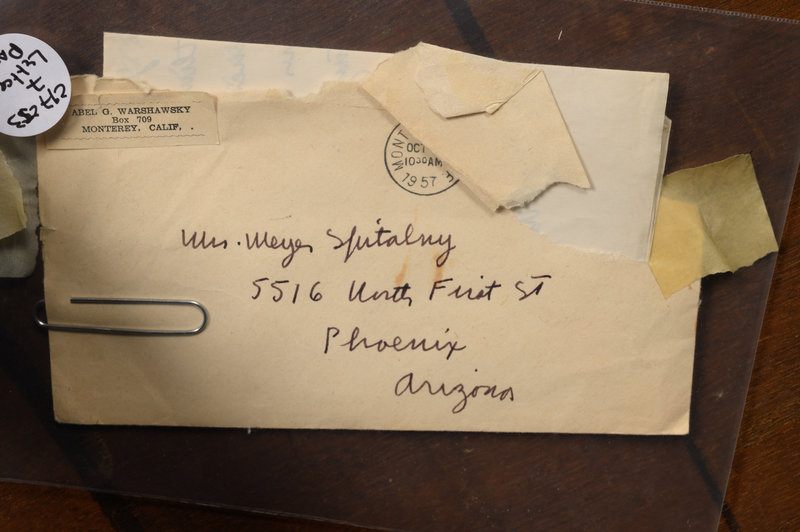 ABEL G. WARSHAWSKY
Box 709
MONTEREY, CALIF.
MONT
OCT
1030AM
1957
Mrs. Meyer Spitalny
5516 North First St
Phoenix
Arizona